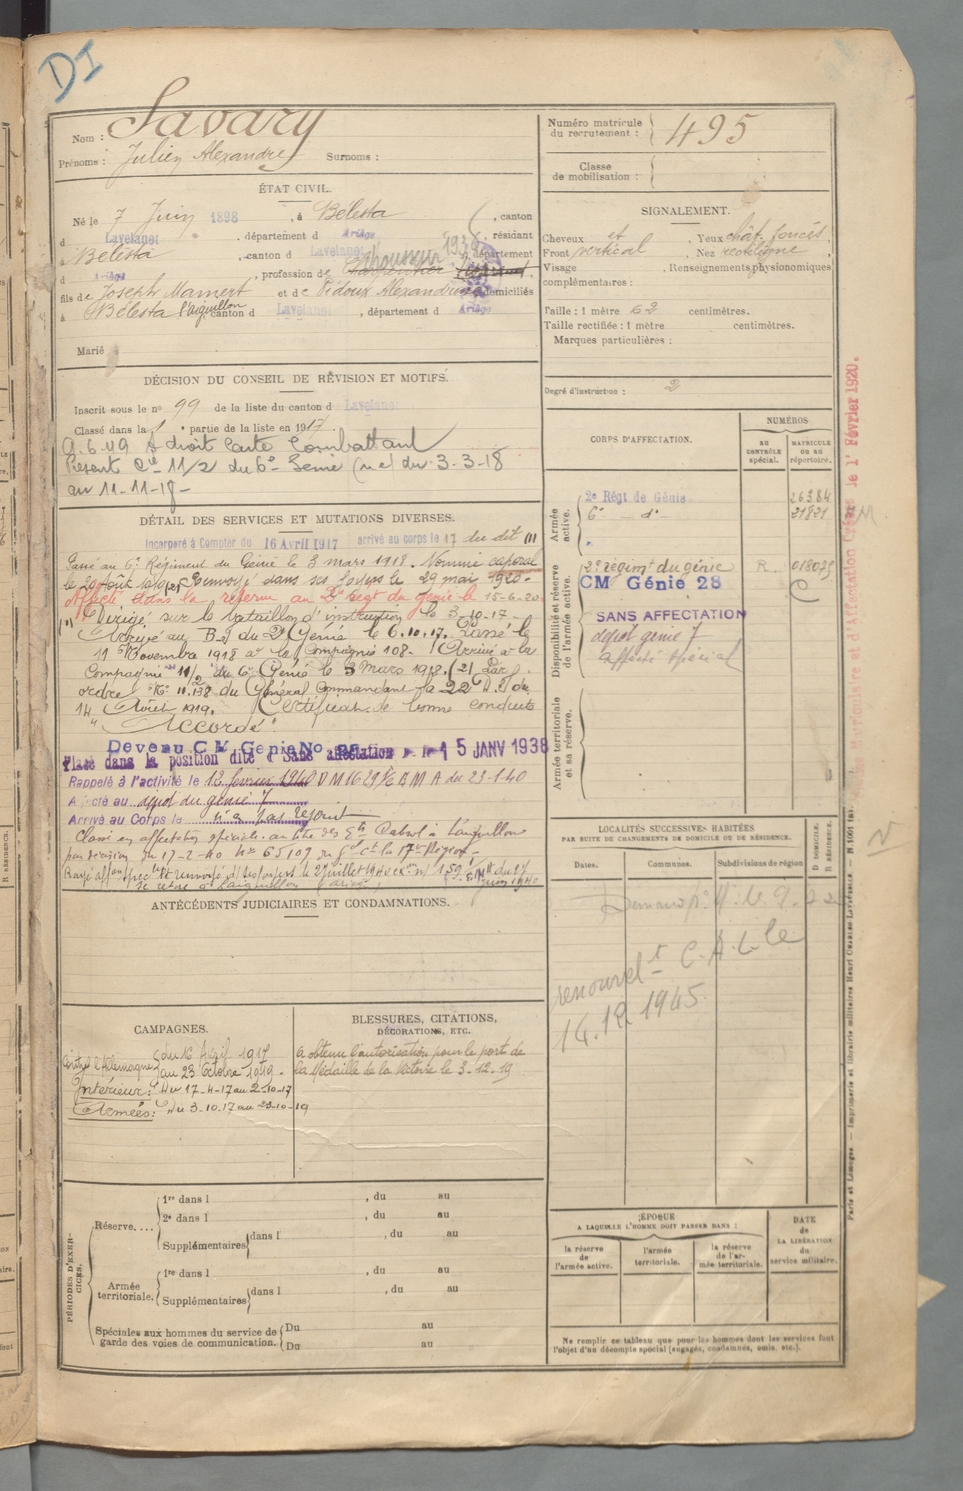 DI
Nom : Savary
Prénoms : Julien Alexandre Surnoms :
ÉTAT CIVIL.
Né le 7 Juin 1898, à Bélesta, canton
d Lavelanet, département d Ariège, résidant
Bélesta, canton d Lavelanet, département
d Ariège, profession de Chausseur 1932 Charpentier
fils de Joseph Mamert et de Pidoux Alexandrine domiciliés
à Bélesta l'aiguillon, canton d Lavelanet, département d Ariège
Marié
DÉCISION DU CONSEIL DE RÉVISION ET MOTIFS.
Inscrit sous le no 99 de la liste du canton d Lavelanet
Classé dans la 1 e partie de la liste en 1917
a droit Carte Combattant
Présent Cie 11/2 du 6e Génie du 3-3-18
au 11-11-18-
DÉTAIL DES SERVICES ET MUTATIONS DIVERSES.
Incorporé à Compter du 16 Avril 1917 arrivé au corps le 17 du dit (1)
Passé au 6e Régiment du Génie le 3 mars 1918. Nommé caporal
le 20 Août 1919 (2) Renvoyé dans ses foyers le 29 mai 1920.
Affecté dans la réserve au 2e Régt du génie le 15-6-20
(1) Dirigé sur le bataillon d'instruction le 3-10-17-
Arrivé au Bon du 2e Génie le 6.10.17. Passé le
11 Novembre 1918 à la Compagnie 108. Arrivé à la
Compagnie 11/2 du 6e Génie le 3 Mars 1918. (2) Par
ordre No 11.138 du Général Commandant la 22e D.I du
14 Août 1919. Certificat de bonne conduite
"Accordé"
Devenu CM Génie No 28
Placé dans la position dite "Sans affectation" le 15 JANV 1938
Rappelé à l'activité le 12 février 1940 DM 1629 BMA du 23-1-40
Affecté au dépôt du génie 7
Arrivé au Corps le n'a pas rejoint
Classé en affectation spéciale au titre des Ets Cabrol à l'aiguillon
par décision du 17-2-40 No 65109 du Gal Ct la 17e Région-
Rayé affon spéc. et renvoyé ds ses foyers le 2 juillet 1940
se retire à l'aiguillon Ariège
ANTÉCÉDENTS JUDICIAIRES ET CONDAMNATIONS.
CAMPAGNES.
Contre l'Allemagne du 16 Avril 1917
au 23 Octobre 1919-
Intérieur: du 17-4-17 au 2-10-17
Armées: du 3-10-17 au 23-10-19
BLESSURES, CITATIONS,
DÉCORATIONS, ETC.
a obtenu l'autorisation pour le port de
la Médaille de la Victoire le 3-12-19
PÉRIODES D'EXERCICES.
Réserve....
1re dans l , du au
2e dans l , du au
Supplémentaires dans l , du au
Armée territoriale.
1re dans l , du au
Supplémentaires dans l , du au
Spéciales aux hommes du service de garde des voies de communication.
Du au
Du au
Numéro matricule du recrutement : 495
Classe de mobilisation :
SIGNALEMENT.
Cheveux et, Yeux chât. foncés,
Front vertical, Nez rectiligne,
Visage , Renseignements physionomiques
complémentaires :
Taille : 1 mètre 62 centimètres.
Taille rectifiée : 1 mètre centimètres.
Marques particulières :
Degré d'instruction : 2
CORPS D'AFFECTATION.
NUMÉROS
AU CONTRÔLE spécial.
MATRICULE OU AU répertoire.
Armée active.
2e Régt de Génie 26384
6e - do - 21821
Disponibilité et réserve de l'armée active.
2e régimt du génie R. 018075
CM Génie 28 C
SANS AFFECTATION
dépôt génie 7
affecté spécial
Armée territoriale et sa réserve.
LOCALITÉS SUCCESSIVES HABITÉES
PAR SUITE DE CHANGEMENTS DE DOMICILE OU DE RÉSIDENCE.
Dates. Communes. Subdivisions de région
D DOMICILE.
R RÉSIDENCE.
renouvelt C.A. le
14.12 1945
ÉPOQUE
A LAQUELLE L'HOMME DOIT PASSER DANS :
la réserve de l'armée active.
l'armée territoriale.
la réserve de l'armée territoriale.
DATE de LA LIBÉRATION du service militaire.
Ne remplir ce tableau que pour les hommes dont les services font
l'objet d'un décompte spécial (engagés, condamnés, omis, etc.).
Matriculaire et d'Affectation Créées le 1er Février 1920.
Paris et Limoges — Imprimerie et librairie militaires Henri CHARLES-LAVAUZELLE